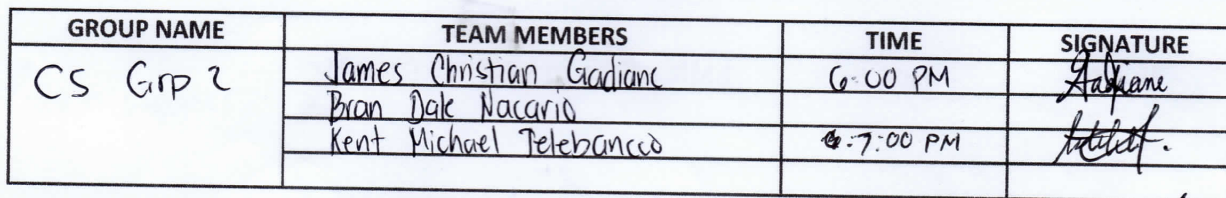 GROUP NAME TEAM MEMBERS TIME SIGNATURE
CS Grp 2 James Christian Gadiane 6:00 PM Gadiane
Bran Dale Nacario
Kent Michael Telebancco 7:00 PM